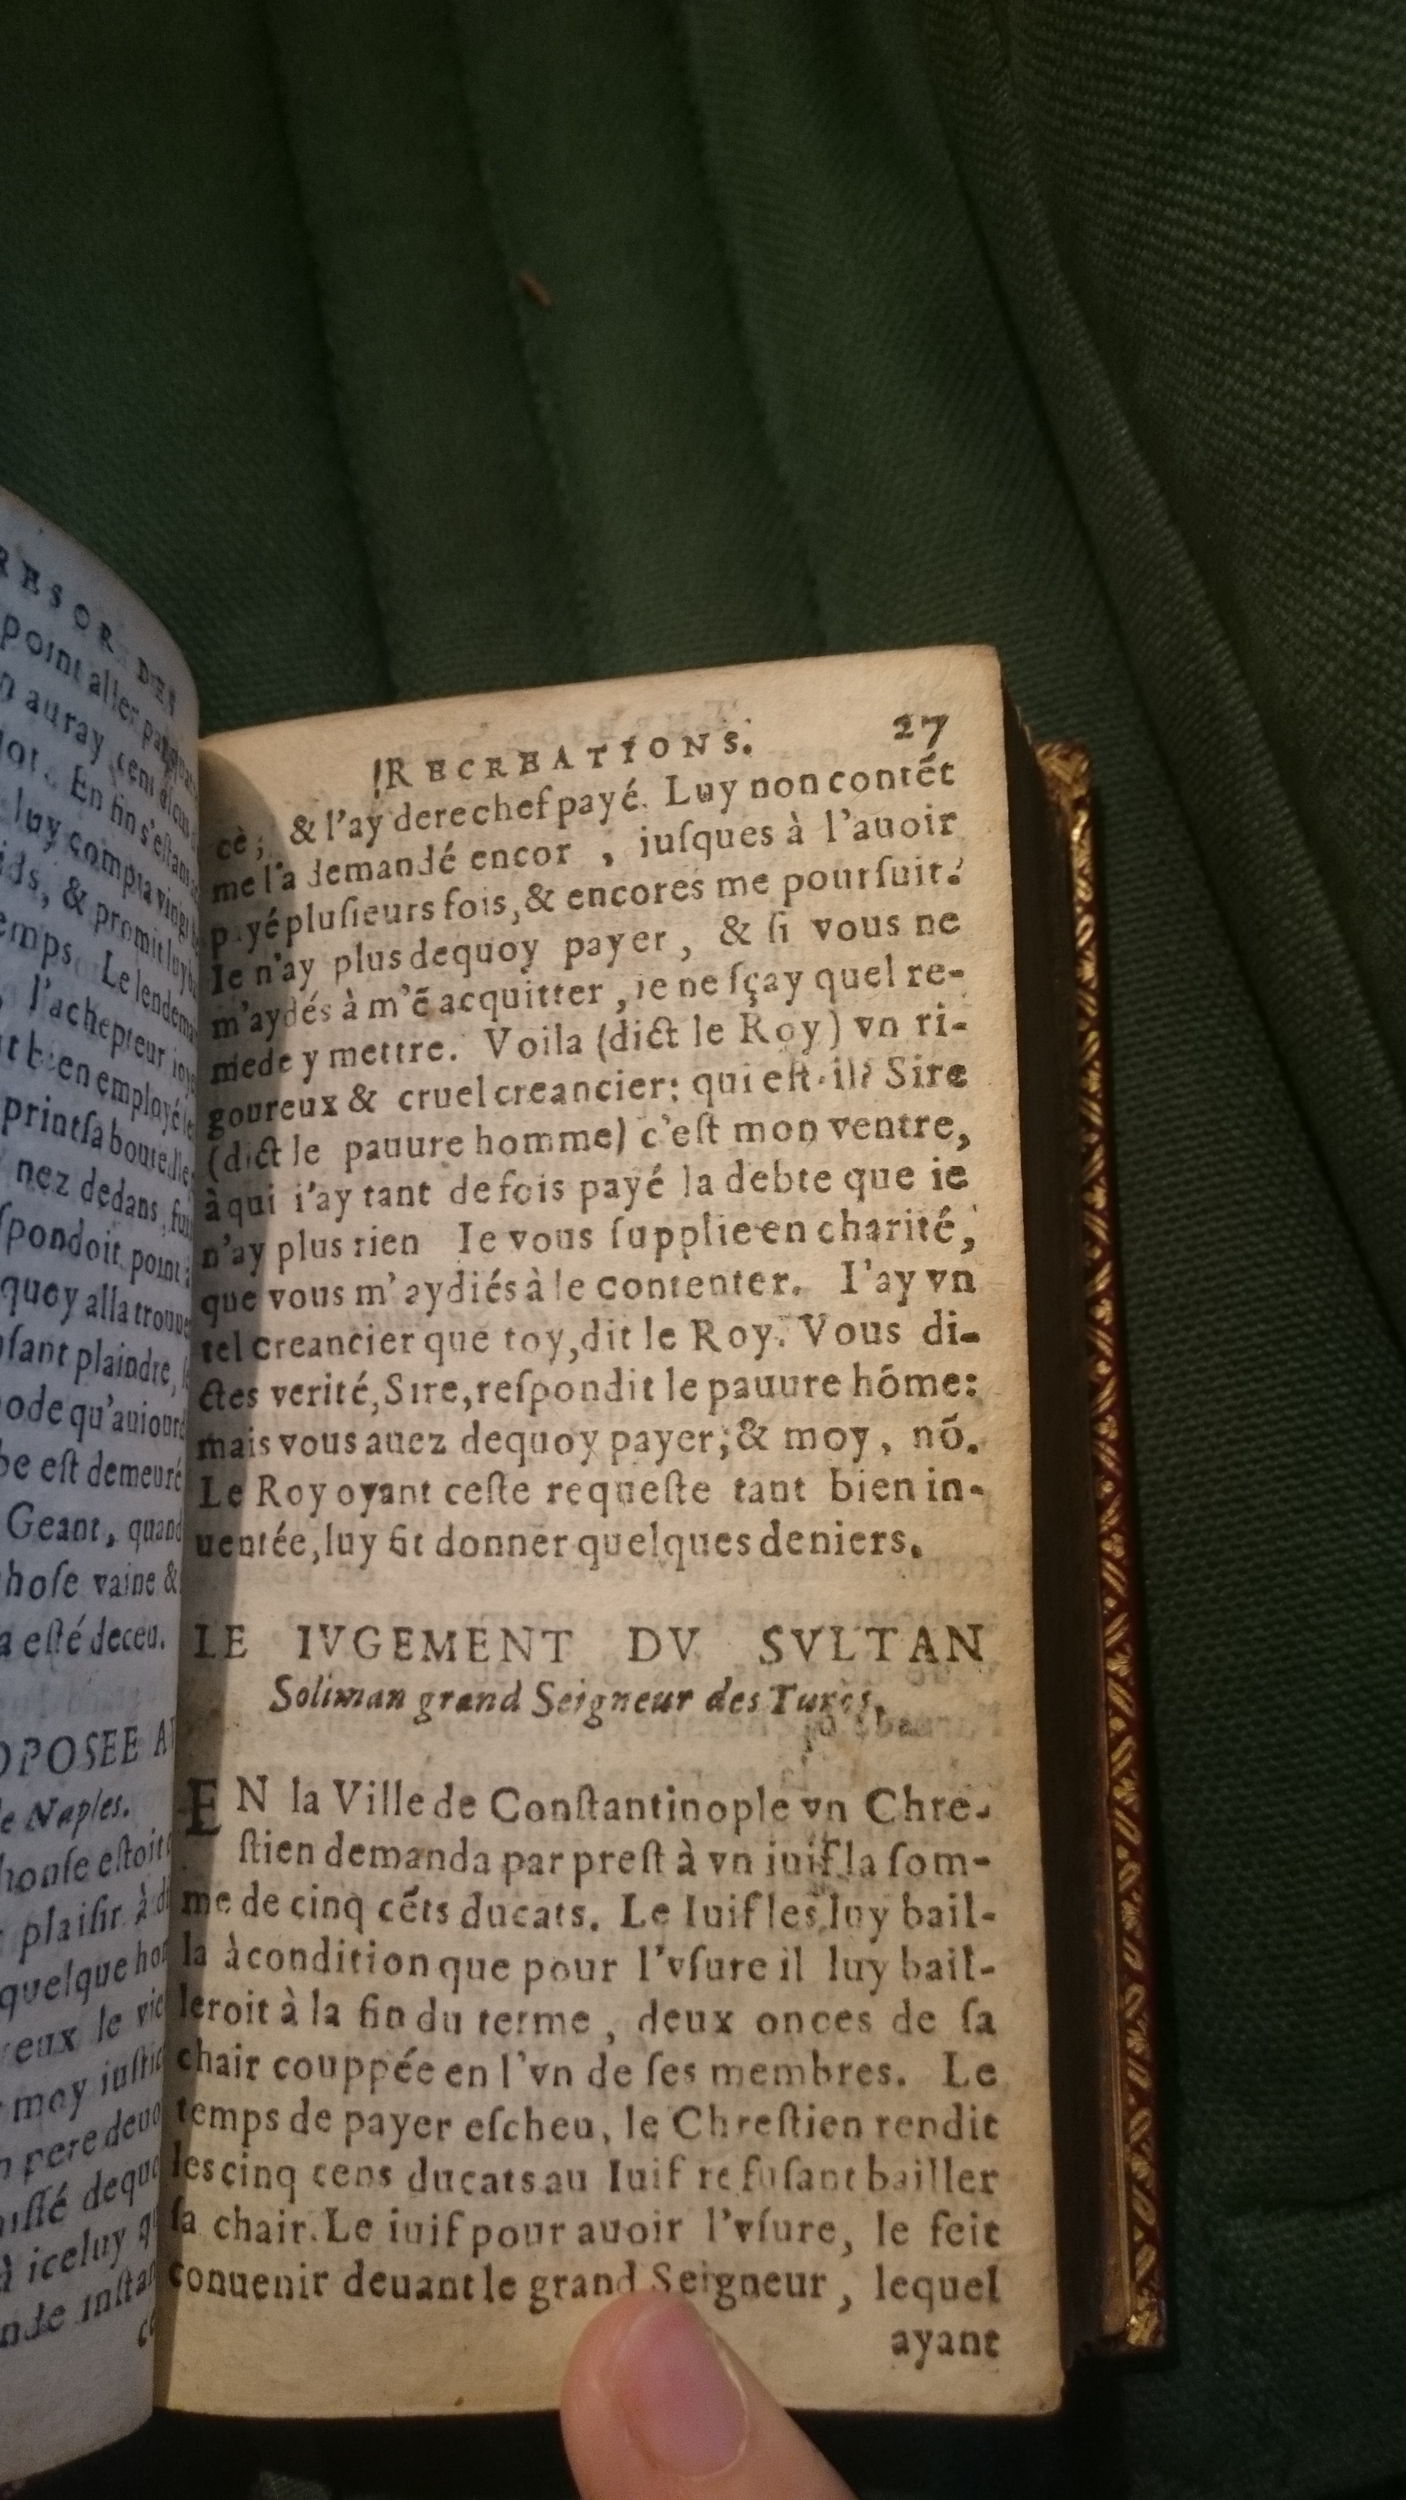 RESOR DES
point aller
n auray cent escus
ot. En fin s'estan
luy compta vingt
ids, & promit luy
emps. Le lendema
, l'achepteur ioy
t bien employé le
print sa bouteille
nez dedans, fut
spondoit point
quoy alla trouue
sant plaindre,
ode qu'auiourd
be est demeuré
Geant, quand
hose vaine &
a esté deceu.
OPOSEE A
e Naples.
honse estoit
plaisir à di
quelque hon
eux le vie
moy iustic
pere deuo
issé dequo
à icelluy q
nde instan
ce
RECREATIONS. 27
cè; & l'ay derechef payé. Luy non contẽt
me l'a demandé encor , iusques à l'auoir
payé plusieurs fois, & encores me poursuit.
Ie n'ay plus dequoy payer , & si vous ne
m'aydés à m'ẽ acquitter , ie ne sçay quel re-
mede y mettre. Voila (dict le Roy) vn ri-
goureux & cruel creancier: qui est-il? Sire
(dict le pauure homme) c'est mon ventre,
à qui i'ay tant de fois payé la debte que ie
n'ay plus rien Ie vous supplie en charité,
que vous m'aydiés à le contenter. I'ay vn
tel creancier que toy, dit le Roy. Vous di-
ctes verité, Sire, respondit le pauure hõme:
mais vous auez dequoy payer; & moy, nõ.
Le Roy oyant ceste requeste tant bien in-
uentée, luy fit donner quelques deniers.
LE IVGEMENT DV SVLTAN
Soliman grand Seigneur des Turcs.
EN la Ville de Constantinople vn Chre-
stien demanda par prest à vn iuif la som-
me de cinq cẽts ducats. Le Iuif les luy bail-
la à condition que pour l'vsure il luy bail-
leroit à la fin du terme , deux onces de sa
chair couppée en l'vn de ses membres. Le
temps de payer escheu, le Chrestien rendit
les cinq cens ducats au Iuif refusant bailler
sa chair. Le iuif pour auoir l'vsure, le feit
conuenir deuant le grand Seigneur , lequel
ayant